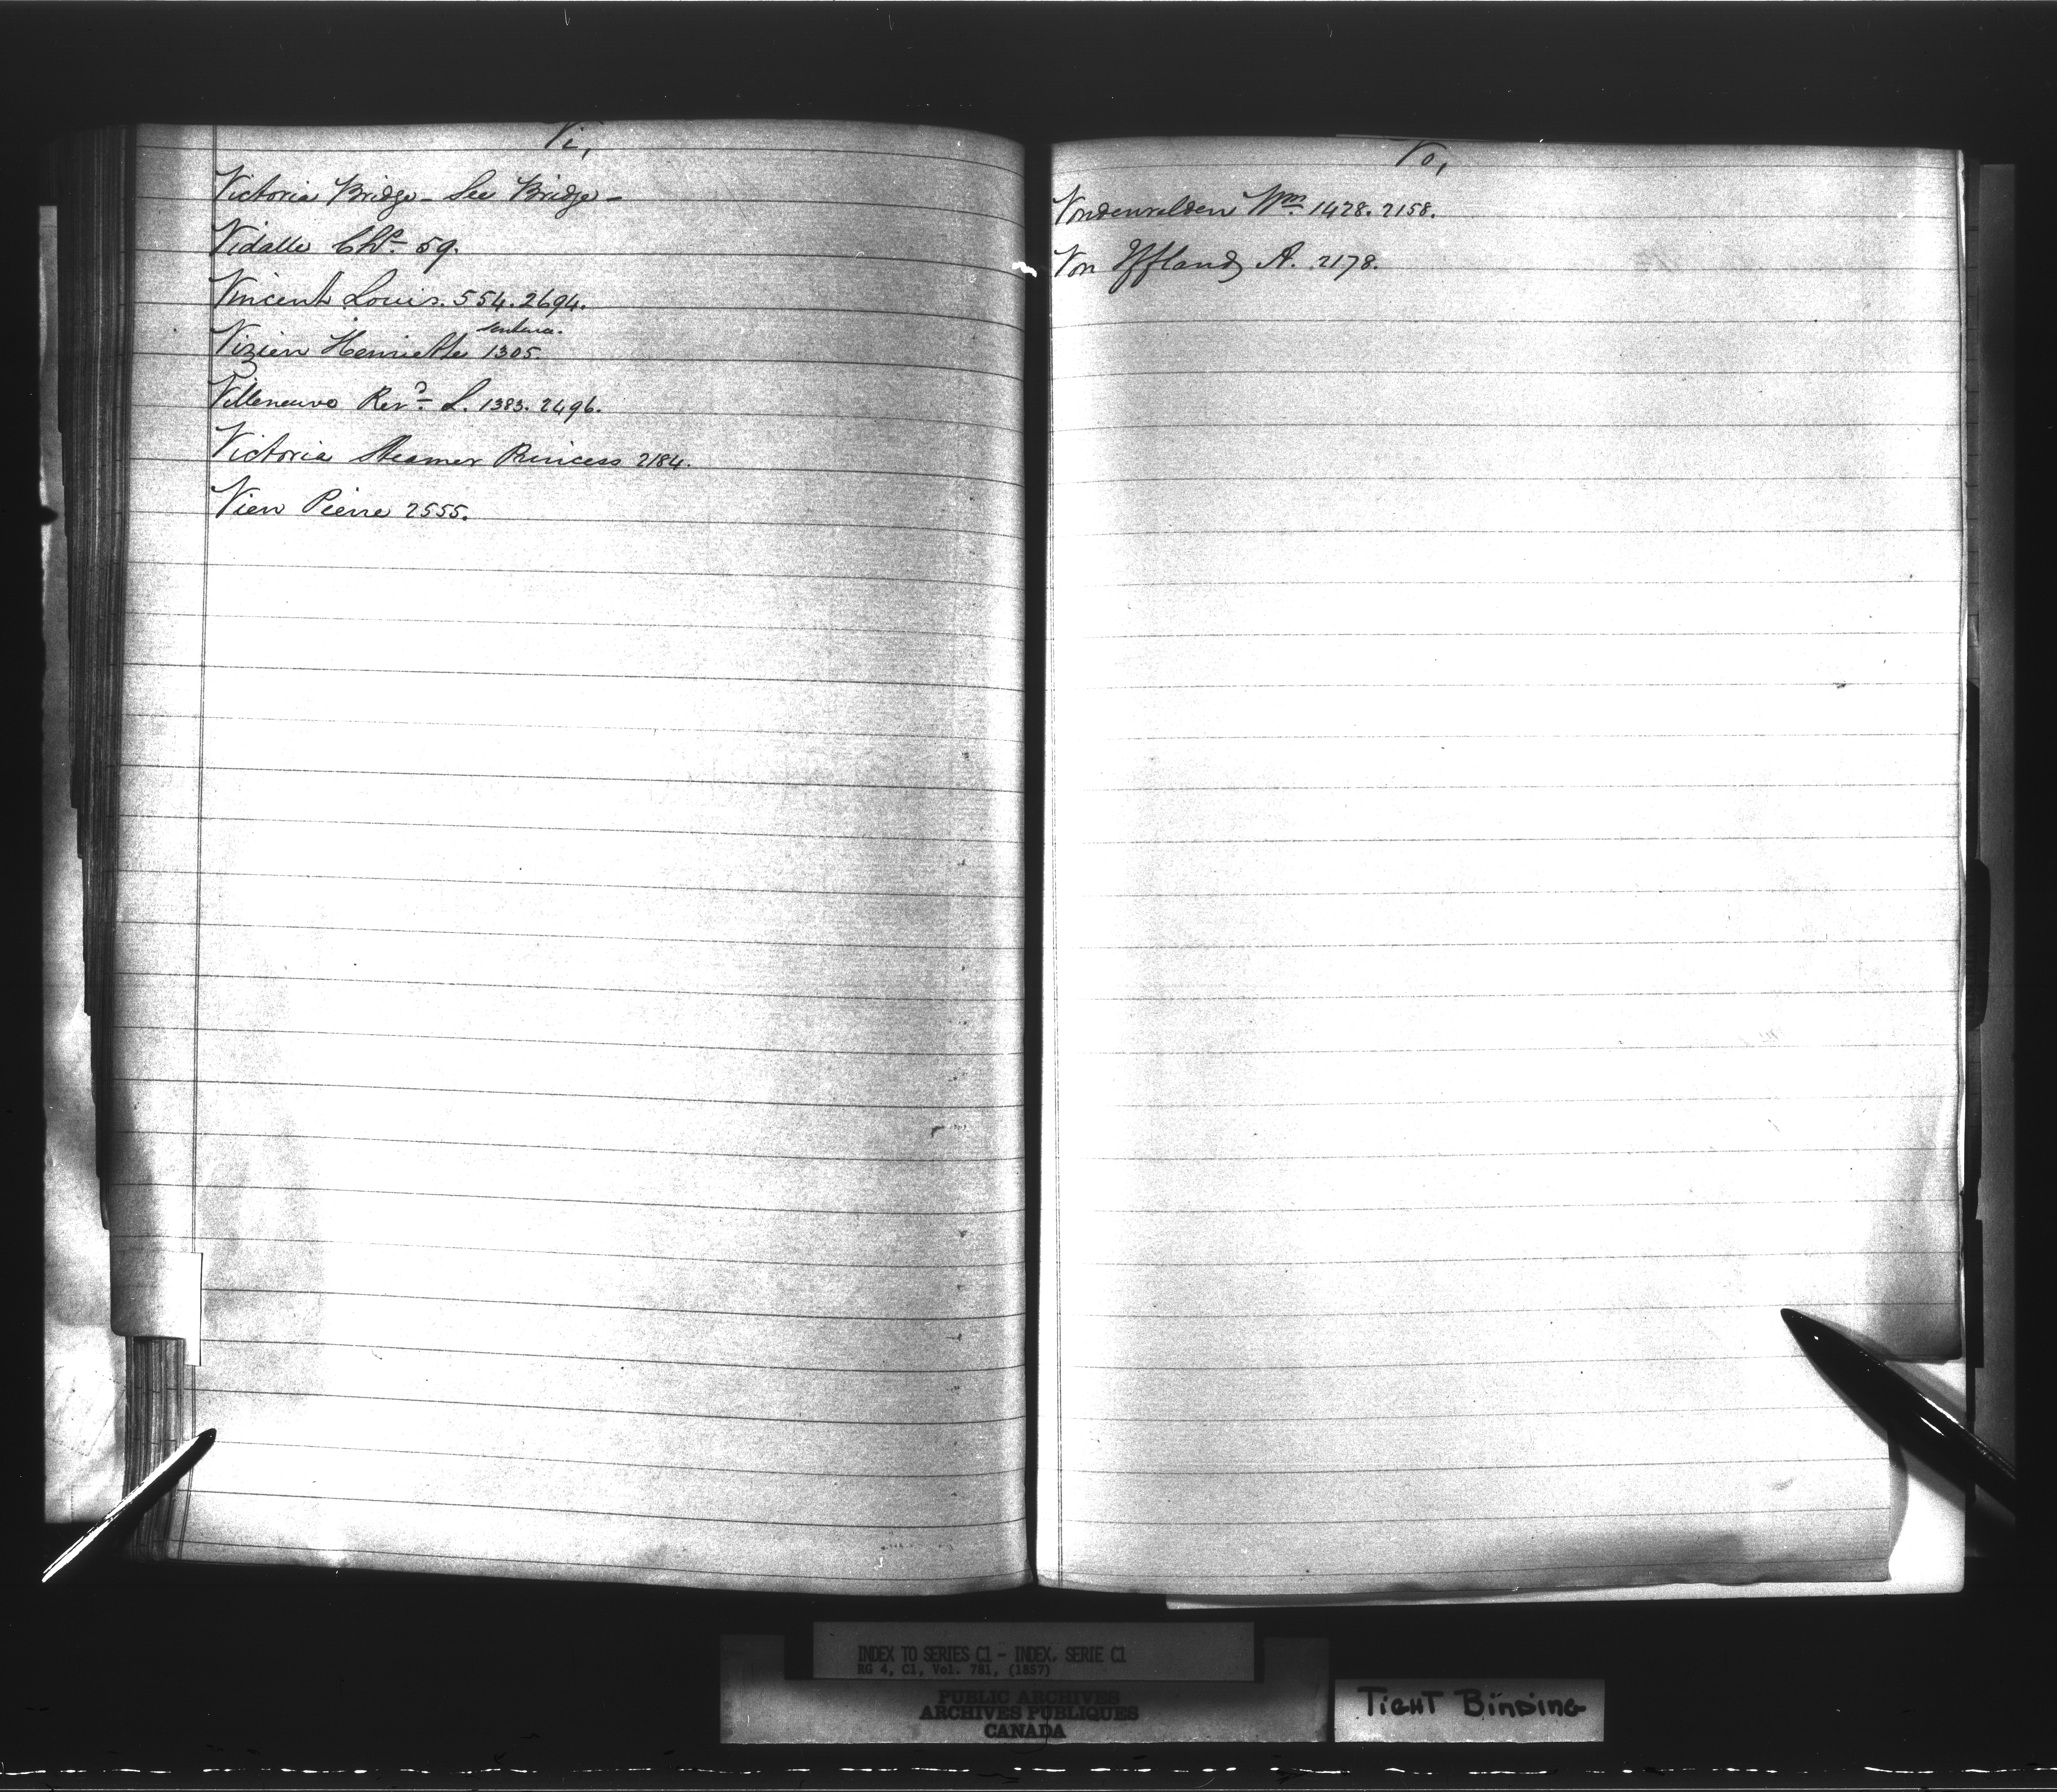 Vi,
Victoria Bridge - See Bridge -
Vidalle Chs. 59.
Vincent Louis. 554. 2694.
sentence.
Vizien Henriette 1305.
Villeneuve Revd. L. 1383. 2496.
Victoria Steamer Princess 2184.
Vien Pierre 2555.
Vo,
Vondenvelden Wm. 1428. 2158.
Von Iffland A. 2178.
INDEX TO SERIES C1 - INDEX, SERIE C1
RG 4, C1, Vol. 781, (1857)
PUBLIC ARCHIVES
ARCHIVES PUBLIQUES
CANADA
TIGHT BINDING